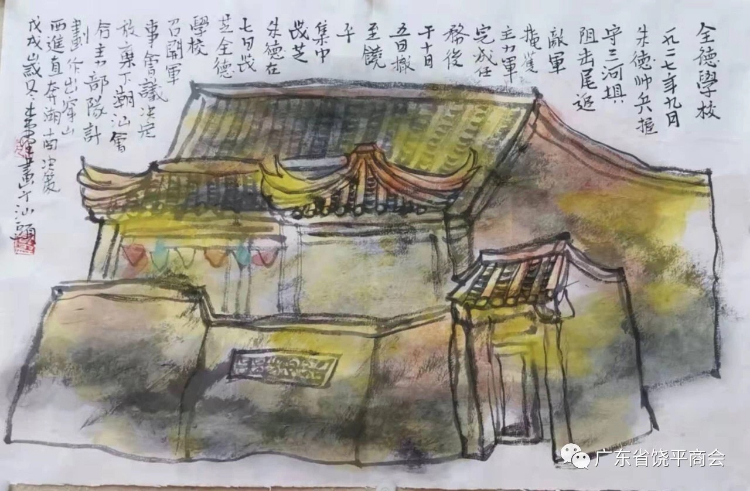 全德學校
一九二七年九月
朱德帥兵握
守三河垻
阻击尾追
敵軍
掩護
主力軍
完成任
務後
于十日
五日撤
至饒
平
集中
茂芝
朱德在
七日茂
芝全德
學校
召開軍
事會議决定
放棄下潮汕會
合主力部隊計
劃作出穿山
西進直奔湘南决策
戊戌歲又
畫于汕頭
广东省饶平商会